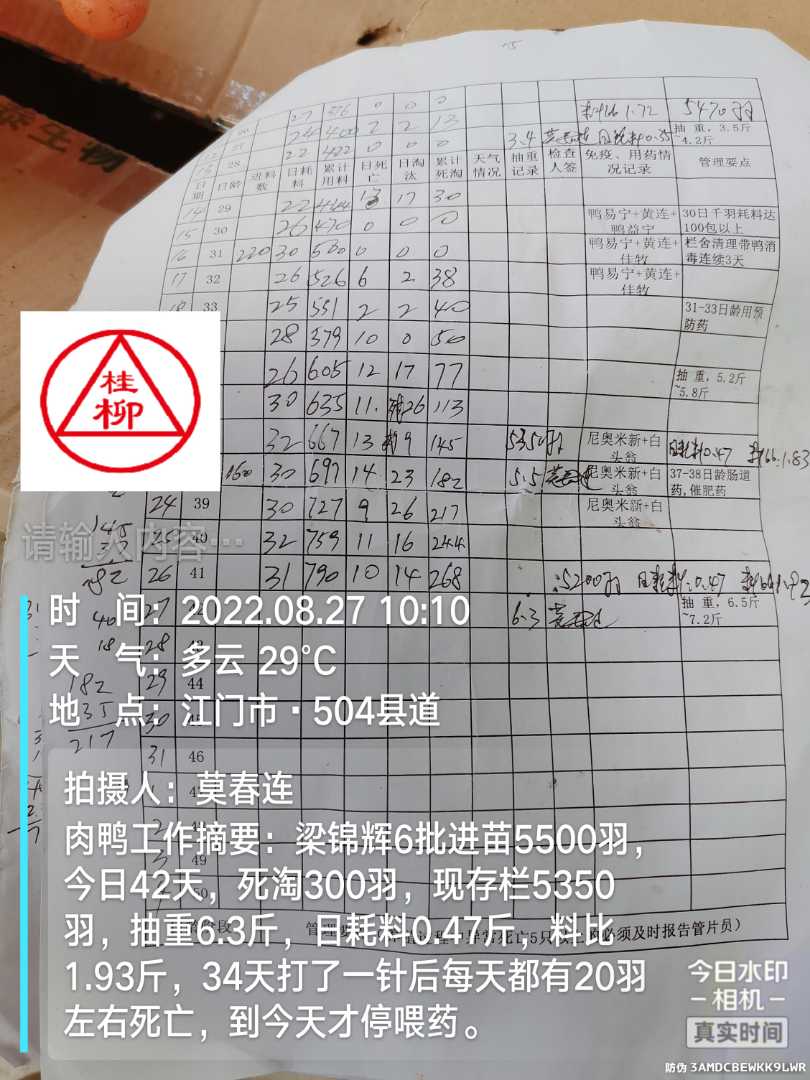 泰生物
27 576 0 0 0 料比 1.72 5470羽
24 400 2 2 13 抽重，3.5斤~4.2斤
28 22 422 0 0 0 3.4 日耗料0.35
日期 日龄 进料数 日耗料 累计用料 日死亡 日淘汰 累计死淘 天气情况 抽重记录 检查人签 免疫、用药情况记录 管理要点
14 29 22 444 13 17 30
15 30 26 470 0 0 0 鸭易宁+黄连+鸭益宁 30日千羽耗料达100包以上
16 31 220 30 500 0 0 0 鸭易宁+黄连+佳牧 栏舍清理带鸭消毒连续3天
17 32 26 526 6 2 38 鸭易宁+黄连+佳牧
18 33 25 551 2 2 40 31-33日龄用预防药
28 379 10 0 50
26 605 12 17 77 抽重，5.2斤~5.8斤
30 635 11 26 113
32 667 13 9 145 5350羽 尼奥米新+白头翁 日耗料0.47 料比1.83
160 30 697 14 23 182 5.5 尼奥米新+白头翁 37-38日龄肠道药，催肥药
24 39 30 727 9 26 217 尼奥米新+白头翁
25 40 32 759 11 16 244
26 41 31 790 10 14 268 5200羽 日耗料0.47
27 6.3 抽重，6.5斤~7.2斤
28
29 44
30
31 46
49
50
182
35
217
桂柳
请输入内容…
时 间：2022.08.27 10:10
天 气：多云 29°C
地 点：江门市·504县道
拍摄人：莫春连
肉鸭工作摘要：梁锦辉6批进苗5500羽，
今日42天，死淘300羽，现存栏5350
羽，抽重6.3斤，日耗料0.47斤，料比
1.93斤，34天打了一针后每天都有20羽
左右死亡，到今天才停喂药。
必须及时报告管片员）
今日水印
-相机-
真实时间
防伪 3AMDCBEWKK9LWR